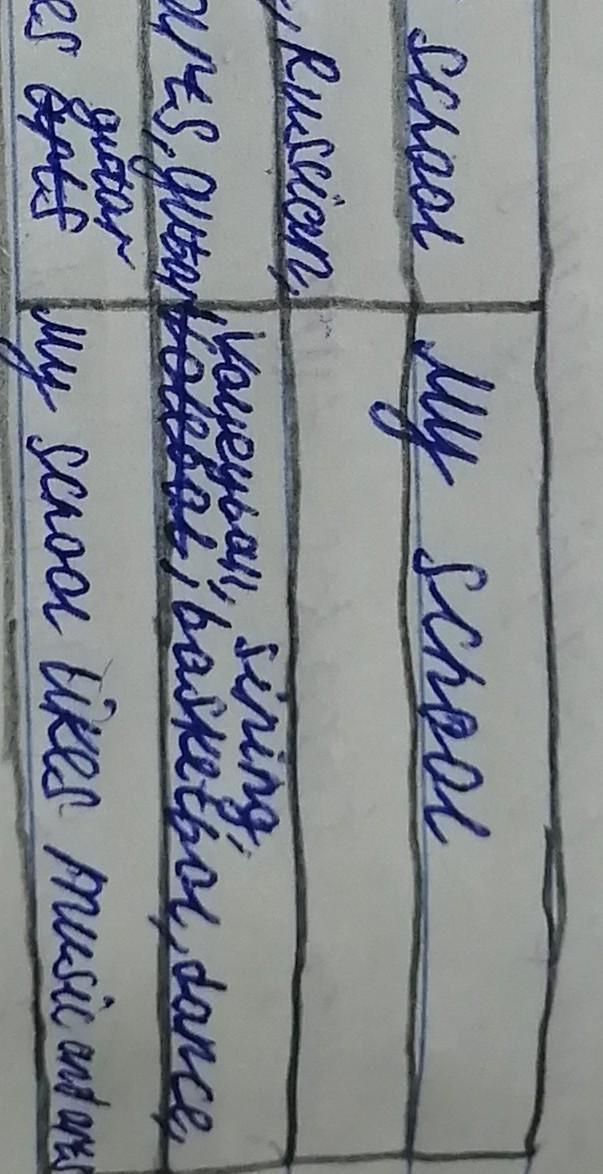 school
My school
, Russian,
Volleyball, sining,
guitar
basketbol, dance,
guitar
My school likes music and arts